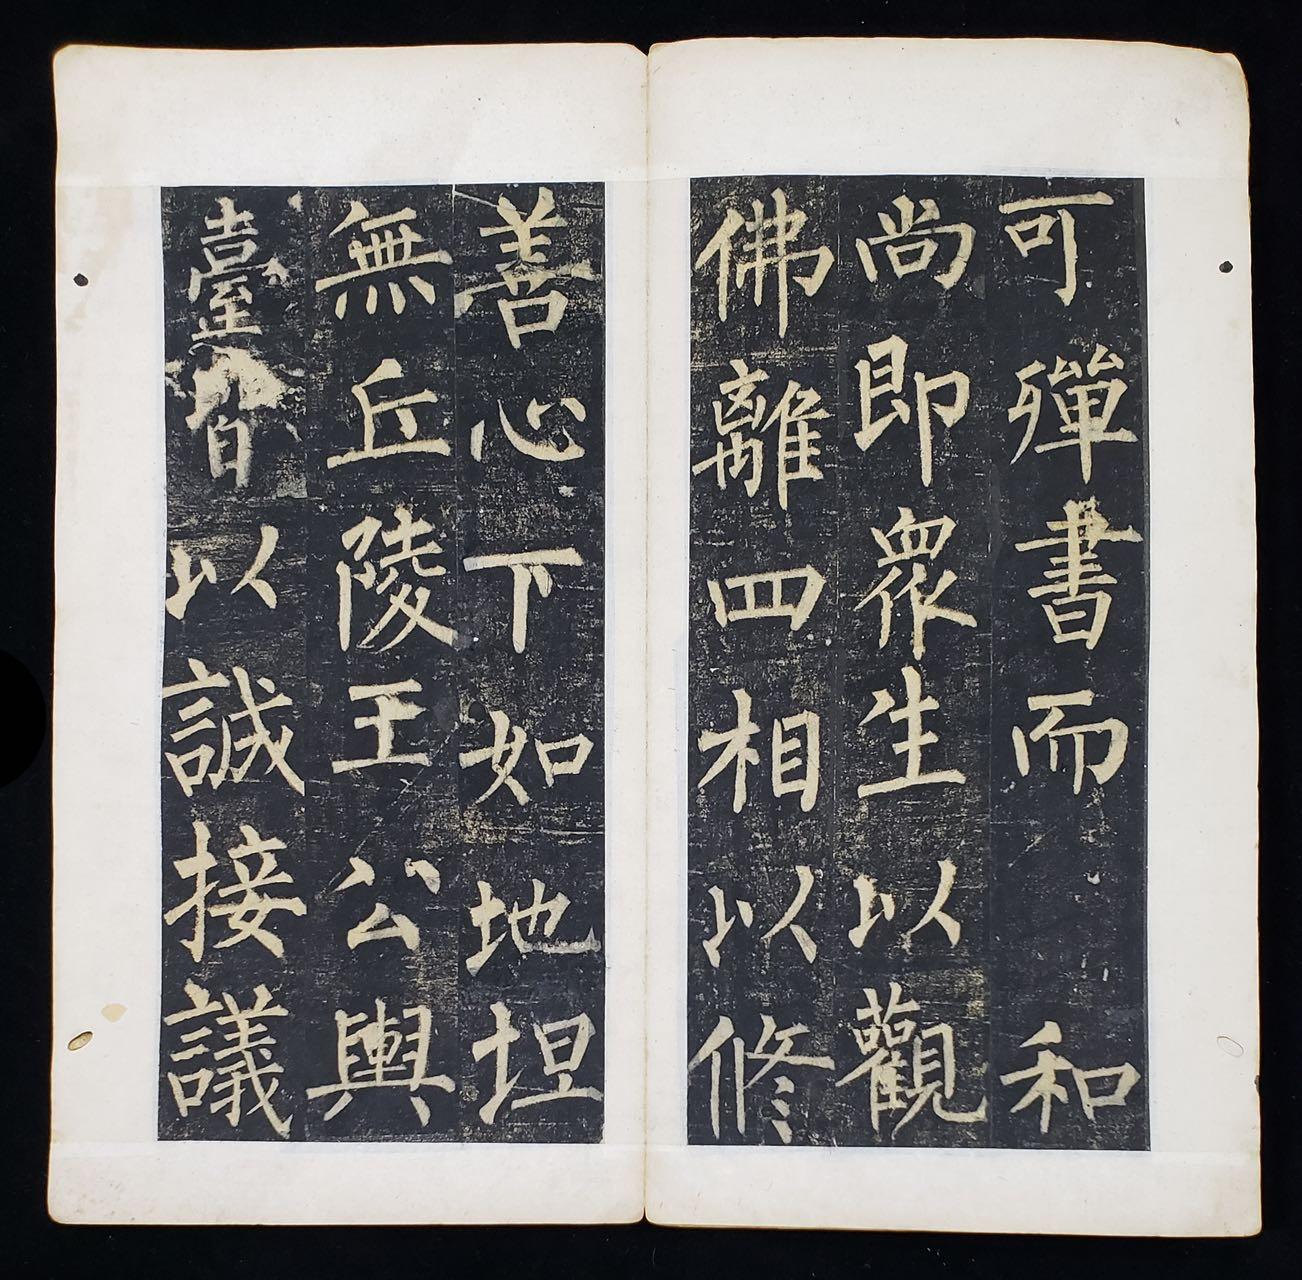 可殫書而和
尚即衆生以觀
佛離四相以修
善心下如地坦
無丘陵王公輿
臺皆以誠接議